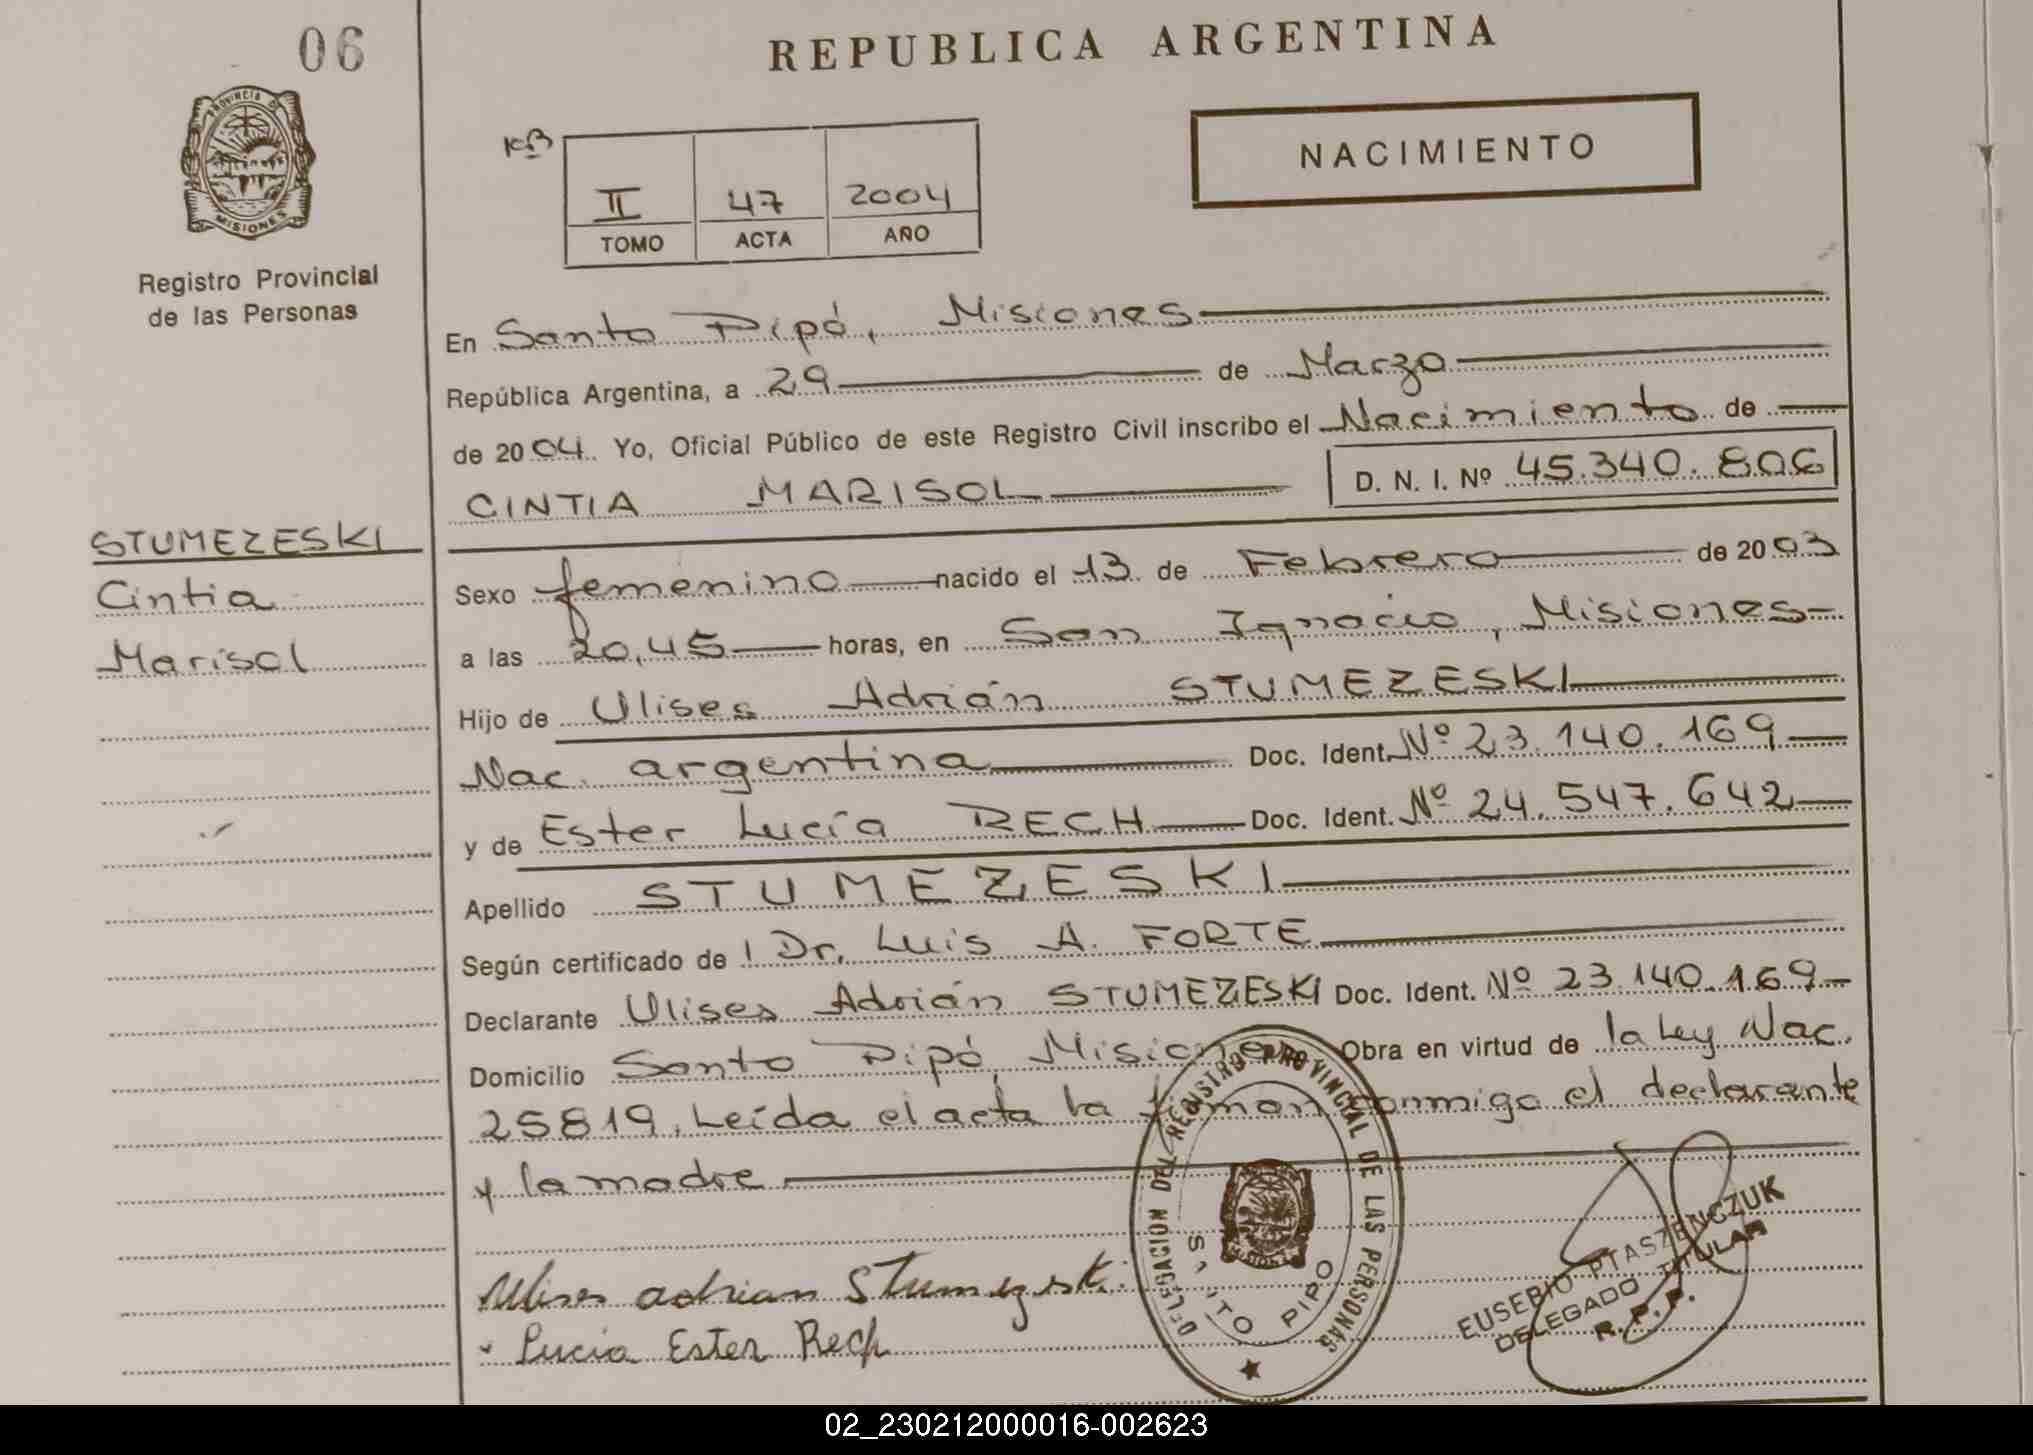 06
REPUBLICA ARGENTINA
PROVINCIA DE
MISIONES
Registro Provincial
de las Personas
KB
II 47 2004
TOMO ACTA AÑO
NACIMIENTO
En Santo Pipó, Misiones
República Argentina, a 29 de Marzo
de 2004. Yo, Oficial Público de este Registro Civil inscribo el Nacimiento de
CINTIA MARISOL D. N. I. Nº 45.340.806
STUMEZESKI
Cintia
Marisol
Sexo femenino nacido el 13 de Febrero de 2003
a las 20,45 horas, en San Ignacio, Misiones-
Hijo de Ulises Adrián STUMEZESKI
Nac. argentina Doc. Ident. Nº 23.140.169
y de Ester Lucía RECH Doc. Ident. Nº 24.547.642
Apellido STUMEZESKI
Según certificado de l Dr. Luis A. FORTE
Declarante Ulises Adrián STUMEZESKI Doc. Ident. Nº 23.140.169-
Domicilio Santo Pipó, Misiones Obra en virtud de la Ley Nac.
25819. Leída el acta la firman conmigo el declarante
y la madre
Ulises adrian Stumezeski
Lucia Ester Rech
DELEGACION DEL REGISTRO PROVINCIAL DE LAS PERSONAS
SANTO PIPO
EUSEBIO PTASZENCZUK
DELEGADO TITULAR
R. P. P.
02_230212000016-002623